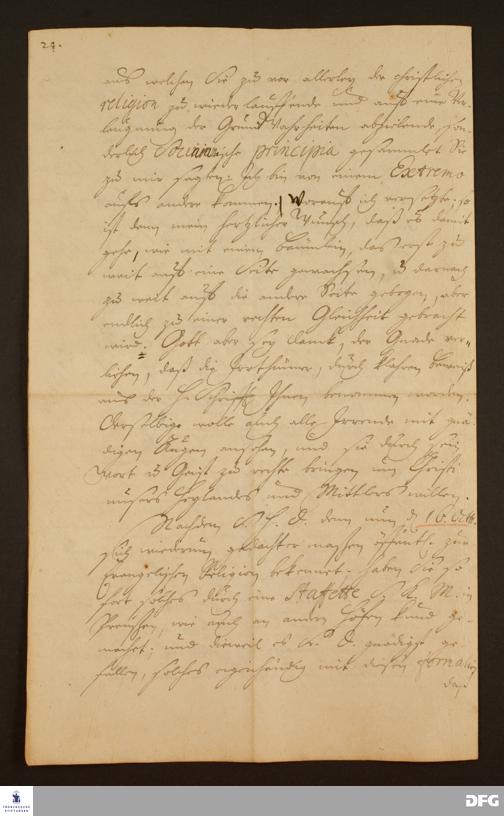 24.
aus welchen Sie zu vor allerley der christlichen
religion zu wieder lauffende und auff eine Ver-
läugnung der Grund Wahrheiten abzielende, son-
derlich principia gesammlet. Sie
zu mir sagten: ich bin von einem Extremo
auffs andere kommen. Worauff ich versetzte: so
ist denn mein hertzlicher Wunsch, daß es damit
gehe, wie mit einem Bäumlein, das erst zu
weit auff eine Seite gewachsen, u. darnach
zu weit auff die andere Seite gebogen, aber
endlich zu einer rechten Gleichheit gebracht
wird. Gott aber sey danck, der Gnade ver-
liehen, daß die Irrthümer, durch klahren beweiß
aus der H. Schrifft Ihnen benommen worden.
Derselbige wolle auch alle Irrende mit gnä-
digen Augen ansehen, und sie durch sein
Wort u. Geist zu rechte bringen um Christi
unsers Heylandes und Mittlers willen.
Nachdem D. denn nun d. 16. Octb.
sich wiederum gedachter massen öffentl. zur
Evangelischen Religion bekennet: haben Sie so
fort solches durch eine Stafette S. K. M. in
Preußen, wie auch an andern Höfen kund ge-
machet; und dieweil es D. gnädigst ge-
fallen, solches eigenhändig mit diesen formalien
daß
FRANCKESCHE
STIFTUNGEN
DFG